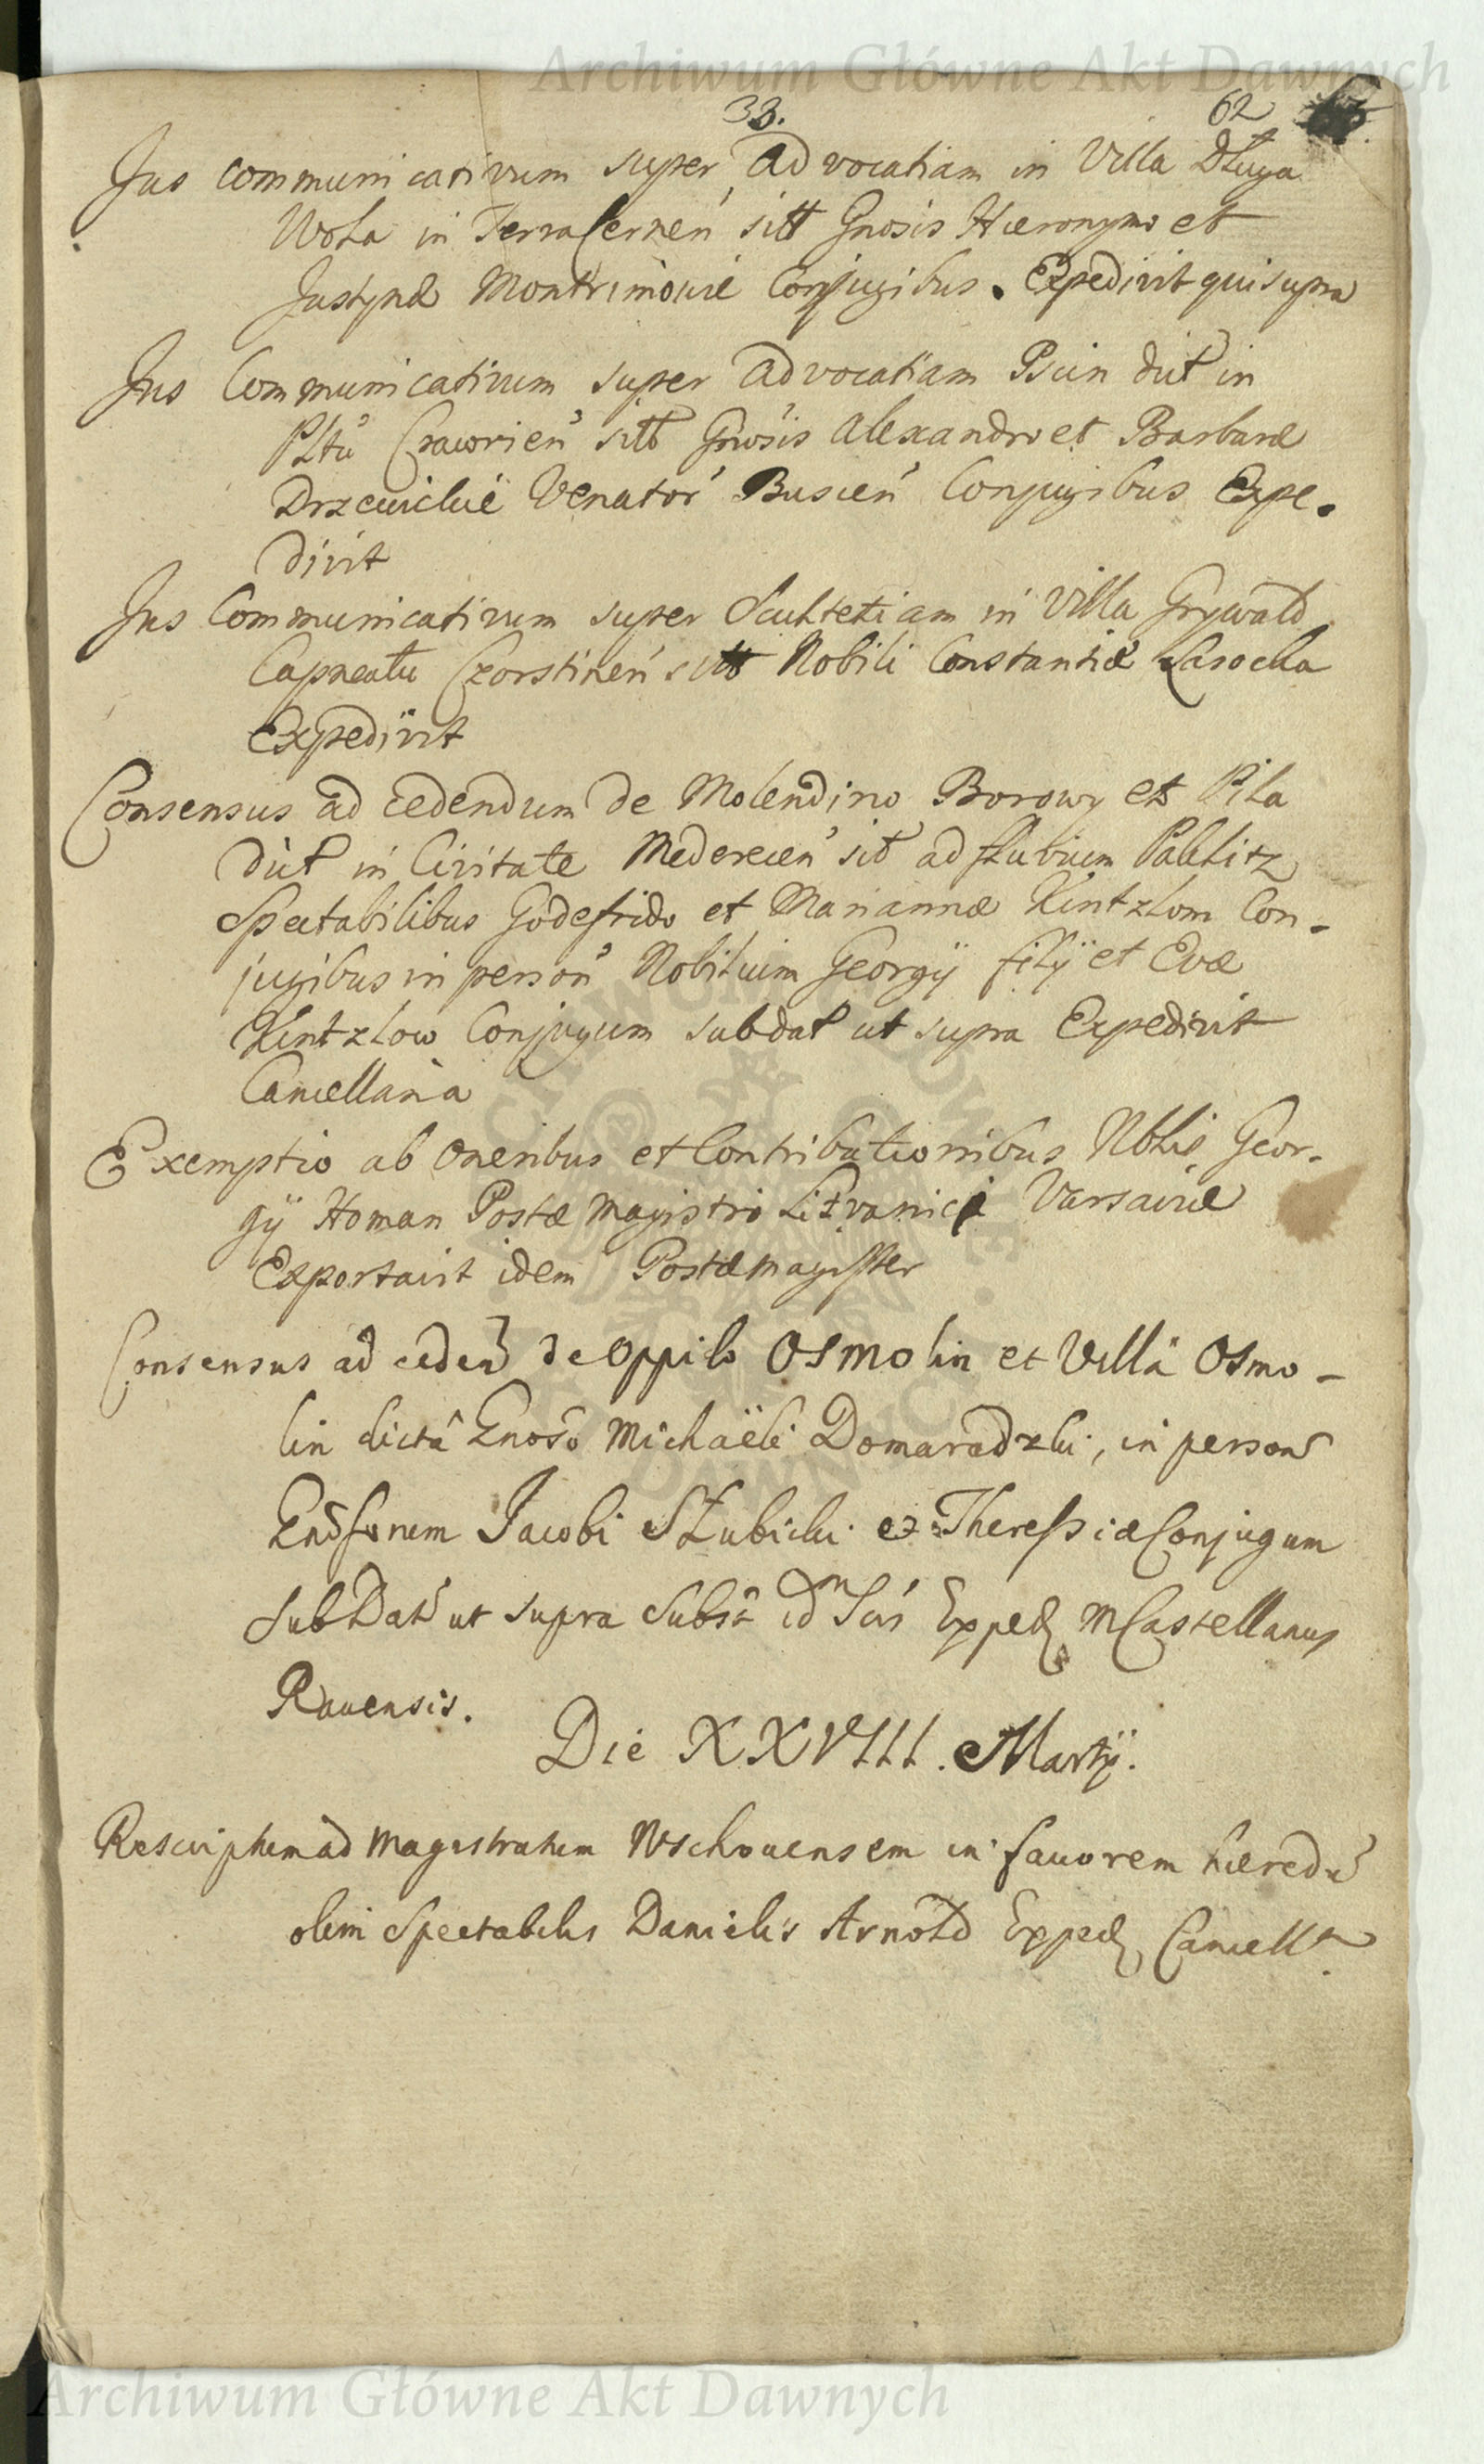 Archiwum Główne Akt Dawnych
33. 62
Jus communicativum super Advocatiam in Villa Długa
Wola in Terra Cernen sitt Gnosis Hieronymo et
Justynæ Montrimowie Conjugibus. Expedivit qui supra
Jus Communicativum super Advocatiam Psein dict in
Pltu sitt Gnosis Alexandro et Barbaræ
Drzewickie Venator Buscen Conjugibus Expe-
divit
Jus Communicativum super Scultetiam in Villa Grywałd
Capneatu Czorstinen sitt Nobili Constantiæ Lasocka
Expedivit
Consensus ad cedendum de Molendino Borowy et Piła
dict in Civitate Mederecen sit ad fluvium Paklitz
Spectabilibus Godefrido et Mariannæ Kintzlom Con-
jugibus in person Nobilium Georgij filij et Evæ
Kintzlow Conjugum subdat ut supra Expedivit
Cancellaria
Exemptio ab Oneribus et Contributionibus Nblis Geor-
gij Homan Postæ Magistri Litvanici Varsaviæ
Exportavit idem Postæ Magister
Consensus ad ceden de Oppido Osmolin et Villâ Osmo-
lin dictâ Gnoso Michaëli Domaradzki, in person
Gnosorum Jacobi Słubicki et Theressiæ Conjugum
Sub Dat ut supra Subst id Scis Exped M Castellanus
Ravensis.
Die XXVIII. Martij.
Rescriptum ad Magistratum Wschovensem in favorem hæredu
olim Spectabilis Danielis Arnold Exped Cancellra
Archiwum Główne Akt Dawnych